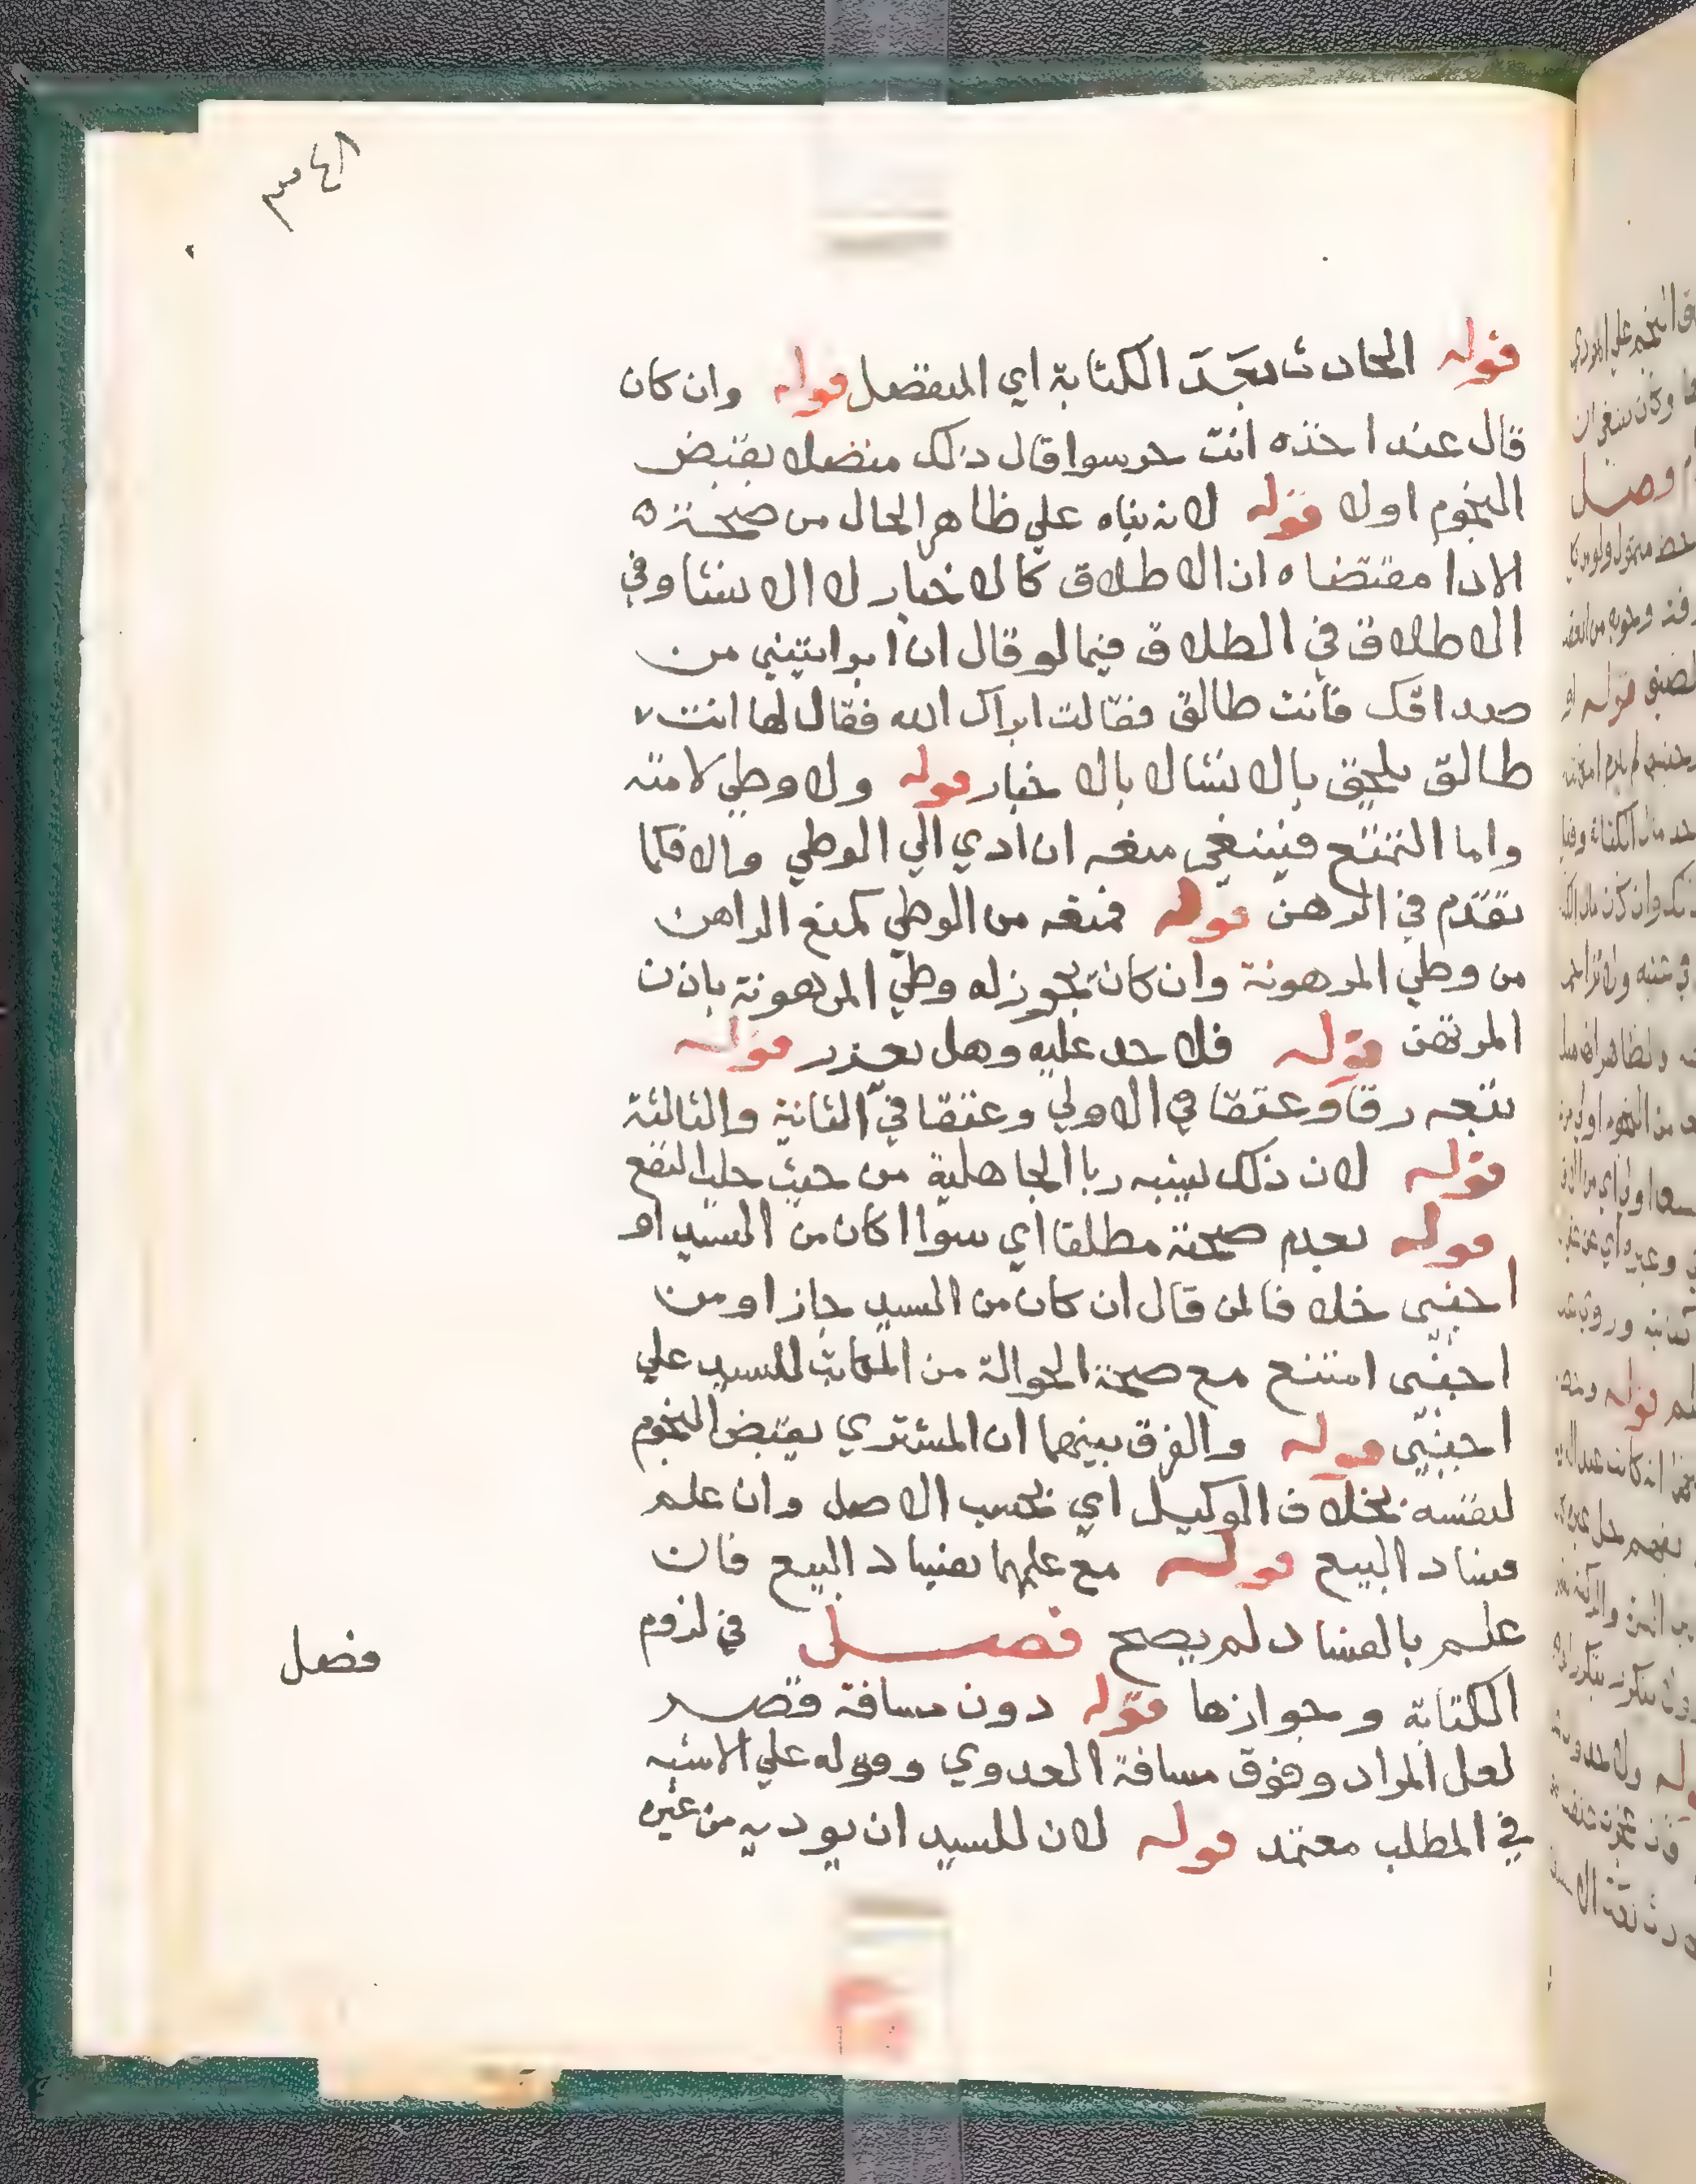 ٣٤٨
قوله الحادث بعد الكتابة اي المنفصل قوله وان كان
قال عند اخذه انت حر سوا قال ذلك متصلا بقبض
النجوم اولا قوله لانه بناه علي ظاهر الحال من صحة
الادا مقتضاه ان الاطلاق كالاخبار لا الانشا وفي
الاطلاق في الطلاق فيما لو قال ان ابراتيني من
صداقك فانت طالق فقالت ابراك الله فقال لها انت
طالق يلحق بالانشا لا بالاخبار قوله ولا وطي لامته
واما التمتع فينبغي منعه ان ادي الي الوطي والا فكما
تقدم في الرهن قوله فمنعه من الوطي كمنع الراهن
من وطي المرهونة وان كان يجوز له وطي المرهونة باذن
المرتهن قوله فلا حد عليه وهل يعزر قوله
تبعه رقا وعتقا في الاولي وعتقا في الثانية والثالثة
قوله لان ذلك يشبه ربا الجاهلية من حيث جلب النفع
قوله بعدم صحته مطلقا اي سوا اكان من السيد او
اجنبي خلافا لمن قال ان كان من السيد جاز او من
اجنبي امتنع مع صحة الحوالة من المكاتب للسيد علي
اجنبي قوله والفرق بينهما ان المشتري يقبض النجوم
لنفسه بخلاف الوكيل اي بحسب الاصل وان علم
فساد البيع قوله مع علمهما بفساد البيع فان
علم بالفساد لم يصح فصل في لزوم
الكتابة وجوازها قوله دون مسافة قصر
لعل المراد وفوق مسافة العدوي وقوله علي الاشبه
في المطلب معتمد قوله لان للسيد ان يوديه من غيره
فصل